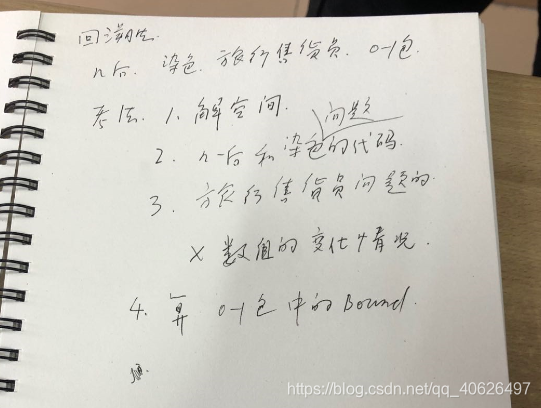 回溯法.
n后. 染色. 旅行售货员. 0-1包.
考点. 1. 解空间.
2. n-后和染色问题的代码.
3. 旅行售货员问题的
x 数组的变化情况.
4. 算 0-1包中的Bound.
https://blog.csdn.net/qq_40626497